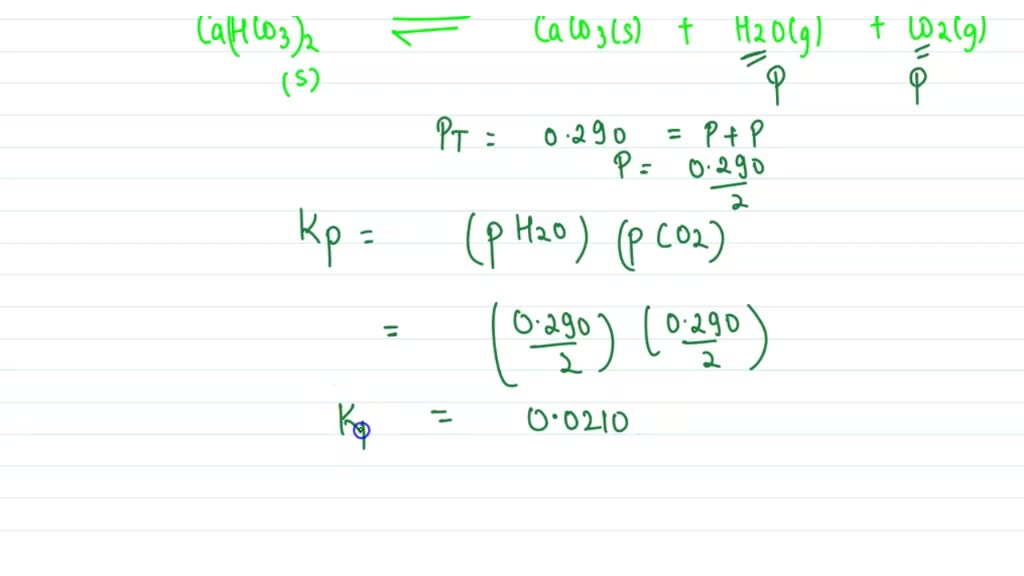 Ca(HCO3)2 ⇌ CaCO3(s) + H2O(g) + CO2(g)
(s) P P
PT = 0.290 = P + P
P = 0.290/2
Kp = (p H2O) (p CO2)
= (0.290/2) (0.290/2)
Kp = 0.0210